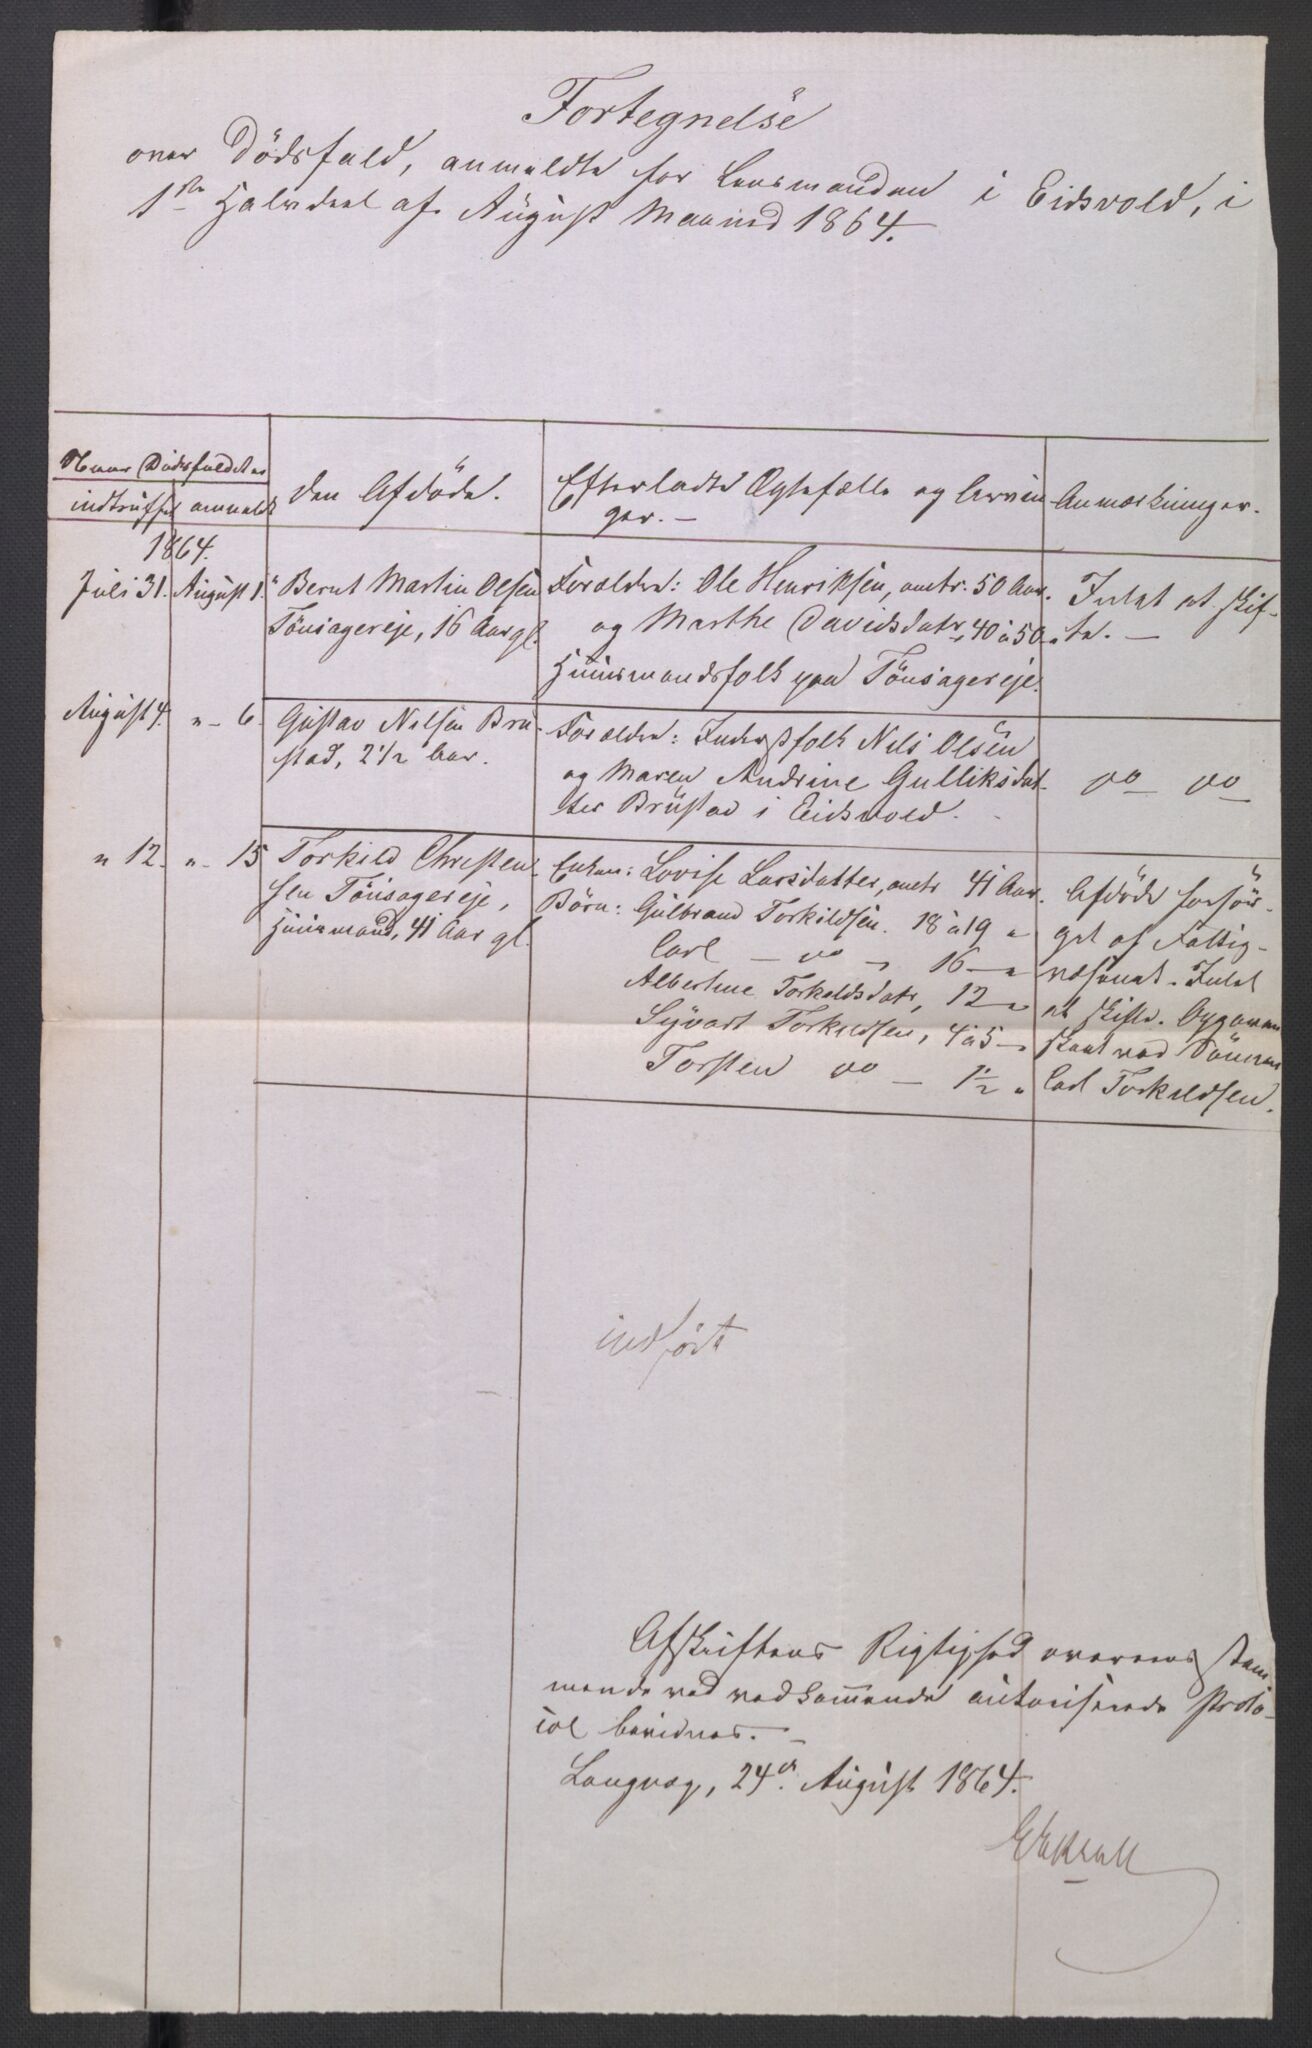 Fortegnelse
over Dödsfald, anmeldte for Lensmanden i Eidsvold, i
1ste Halvdeel af August Maaned 1864.
Naar Dödsfaldet er
indtruffet anmeldt
Den Afdöde.
Efterladte Ægtefælle og Arvin-
ger. -
Anmærkninger.
1864.
Juli 31. August 1. Bernt Martin Olsen
Tönsagereje, 16 Aar gl.
Forældre: Ole Henriksen, omtr. 50 Aar.
og Marthe Davidsdatr, 40 à 50 "
Huusmandsfolk paa Tönsagereje.
Intet at skif-
te. -
August 4. " - 6. Gustav Nilsen Bru-
stad, 2 1/2 Aar.
Forældre: Inderstfolk Nils Olsen
og Maren Andrine Gulliksdat-
ter Brustad i Eidsvold.
do do
" 12. " - 15 Torkild Christen-
sen Tönsagereje,
Huusmand, 41 Aar gl.
Enken: Lovise Larsdatter, omtr 41 Aar.
Börn: Gulbrand Torkildsen. 18 à 19 "
Carl - do - 16 - "
Albertine Torkeldsdatr, 12 - "
Syvart Torkildsen, 4 à 5 - "
Torsten do - 1 1/2 "
Afdöde forsör-
get af Fattig-
væsenet. Intet
at skifte. Opgaven
skeet ved Sönnen
Carl Torkeldsen.
indfört
Afskriftens Rigtighed overeensstem-
mende med vedkommende autoriserede Proto-
col bevidnes. -
Langvog, 24de August 1864.